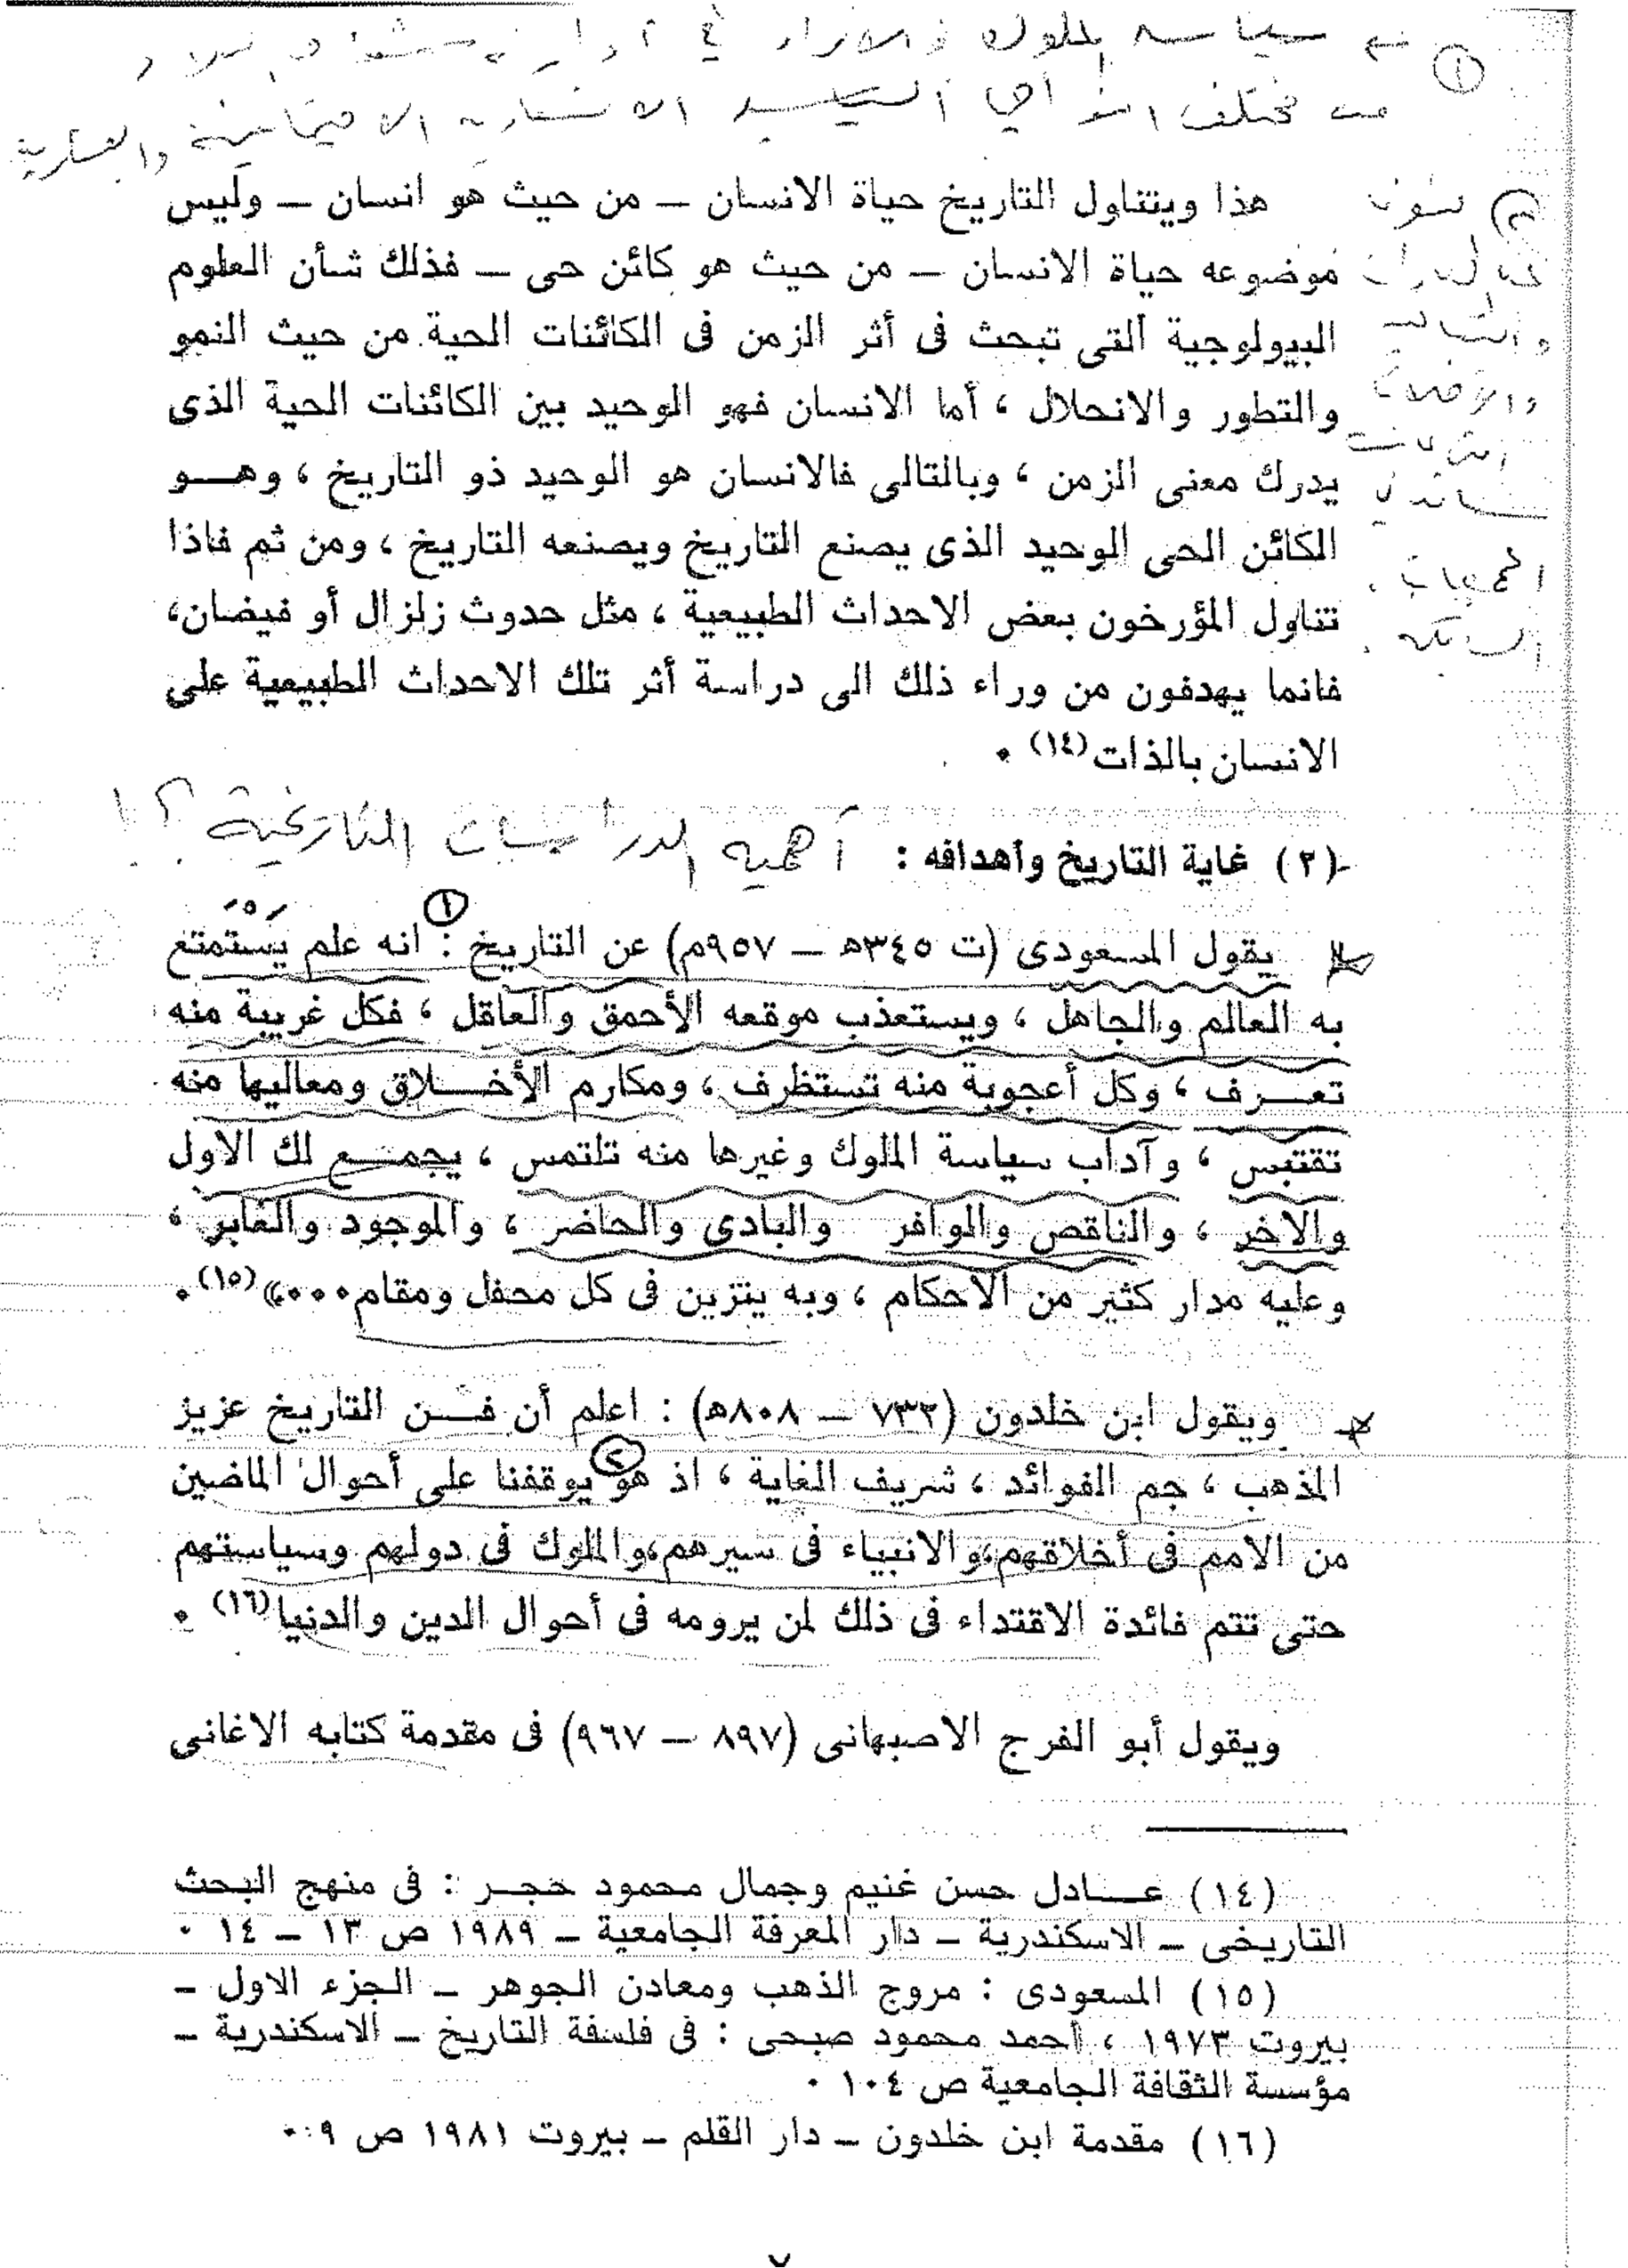 سياسه الملوك في
من مختلف الاجتماعية والعسكرية
هذا ويتناول التاريخ حياة الانسان – من حيث هو انسان – وليس
موضوعه حياة الانسان – من حيث هو كائن حى – فذلك شأن العلوم
البيولوجية التى تبحث فى أثر الزمن فى الكائنات الحية من حيث النمو
والتطور والانحلال ، أما الانسان فهو الوحيد بين الكائنات الحية الذى
يدرك معنى الزمن ، وبالتالى فالانسان هو الوحيد ذو التاريخ ، وهـــو
الكائن الحى الوحيد الذى يصنع التاريخ ويصنعه التاريخ ، ومن ثم فاذا
تناول المؤرخون بعض الاحداث الطبيعية ، مثل حدوث زلزال أو فيضان،
فانما يهدفون من وراء ذلك الى دراسة أثر تلك الاحداث الطبيعية على
الانسان بالذات(١٤) ٠
(٢) غاية التاريخ وأهدافه : أهمية الدراسات التاريخية ؟!
يقول المسعودى (ت ٣٤٥ه – ٩٥٧م) عن التاريخ : انه علم يستمتع
به العالم والجاهل ، ويستعذب موقعه الأحمق والعاقل ، فكل غريبة منه
تعـــرف ، وكل أعجوبة منه تستظرف ، ومكارم الأخـــلاق ومعاليها منه
تقتبس ، وآداب سياسة الملوك وغيرها منه تلتمس ، يجمـــع لك الاول
والاخر ، والناقص والوافر والبادى والحاضر ، والموجود والغابر ،
وعليه مدار كثير من الاحكام ، وبه يتزين فى كل محفل ومقام٠٠٠»(١٥)٠
ويقول ابن خلدون (٧٣٢ – ٨٠٨ه) : اعلم أن فـــن التاريخ عزيز
المذهب ، جم الفوائد ، شريف الغاية ، اذ هو يوقفنا على أحوال الماضين
من الامم فى أخلاقهم،والانبياء فى سيرهم،والملوك فى دولهم وسياستهم
حتى تتم فائدة الاقتداء فى ذلك لمن يرومه فى أحوال الدين والدنيا(١٦) ٠
ويقول أبو الفرج الاصبهانى (٨٩٧ – ٩٦٧) فى مقدمة كتابه الاغانى
(١٤) عـــادل حسن غنيم وجمال محمود حجـر : فى منهج البحث
التاريخى – الاسكندرية – دار المعرفة الجامعية – ١٩٨٩ ص ١٣ – ١٤ ٠
(١٥) المسعودى : مروج الذهب ومعادن الجوهر – الجزء الاول –
بيروت ١٩٧٣ ، أحمد محمود صبحى : فى فلسفة التاريخ – الاسكندرية –
مؤسسة الثقافة الجامعية ص ١٠٤ ٠
(١٦) مقدمة ابن خلدون – دار القلم – بيروت ١٩٨١ ص ٩ ٠
٧